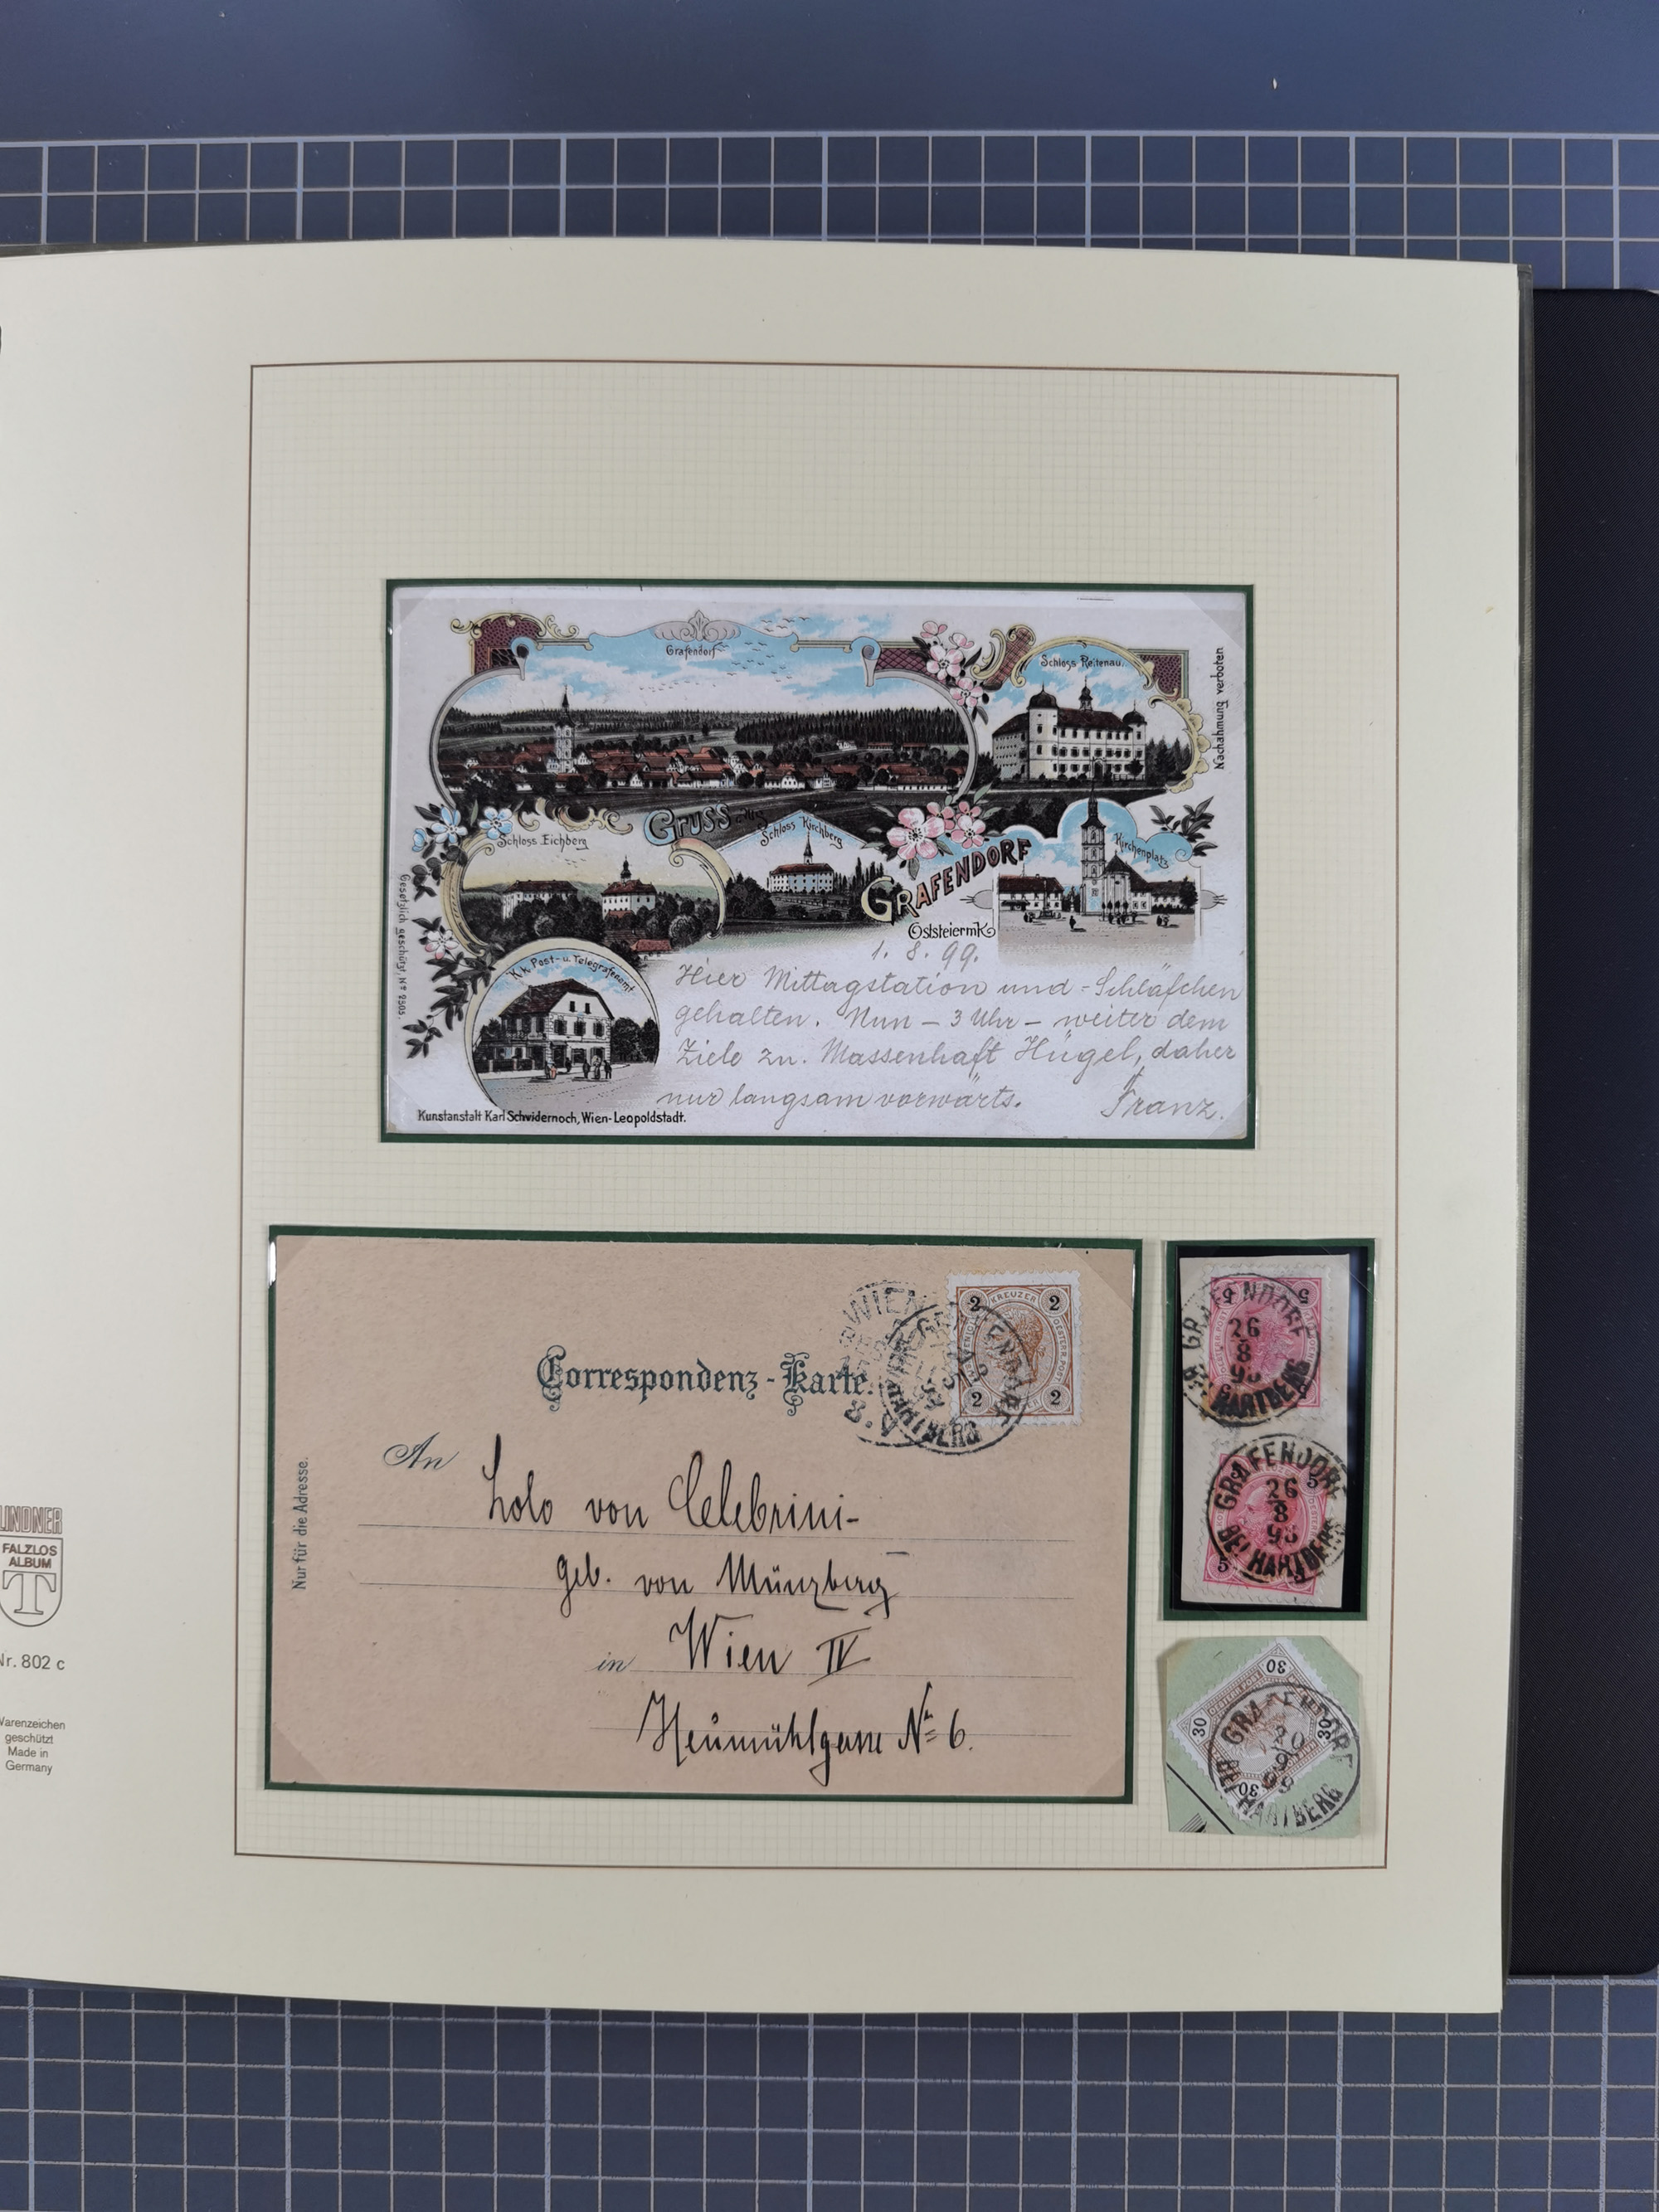 Grafendorf
Schloss Reitenau.
Nachahmung verboten
Gruss aus
GRAFENDORF
Oststeiermk
Schloss Eichberg
Schloss Kirchberg
Kirchenplatz
Gesetzlich geschützt, No 2505.
K.k. Post- u. Telegrafenamt
1. 8. 99.
Hier Mittagstation und - Schläfchen
gehalten. Nun - 3 Uhr - weiter dem
Ziele zu. Massenhaft Hügel, daher
nur langsam vorwärts. Franz.
Kunstanstalt Karl Schwidernoch, Wien-Leopoldstadt.
Correspondenz-Karte.
WIEN
2 KREUZER 2
2 2
HARTBERG
Nur für die Adresse.
An Lolo von Celebrini-
geb. von Münzberg
in Wien IV
Heumühlgasse No 6.
GRAFENDORF
26
8
HARTBERG
5 5
GRAFENDORF
26
8
BEI HARTBERG
5 5
30 30 30 30
GRAFENDORF
BEI HARTBERG
LINDNER
FALZLOS
ALBUM
T
Nr. 802 c
Warenzeichen
geschützt
Made in
Germany